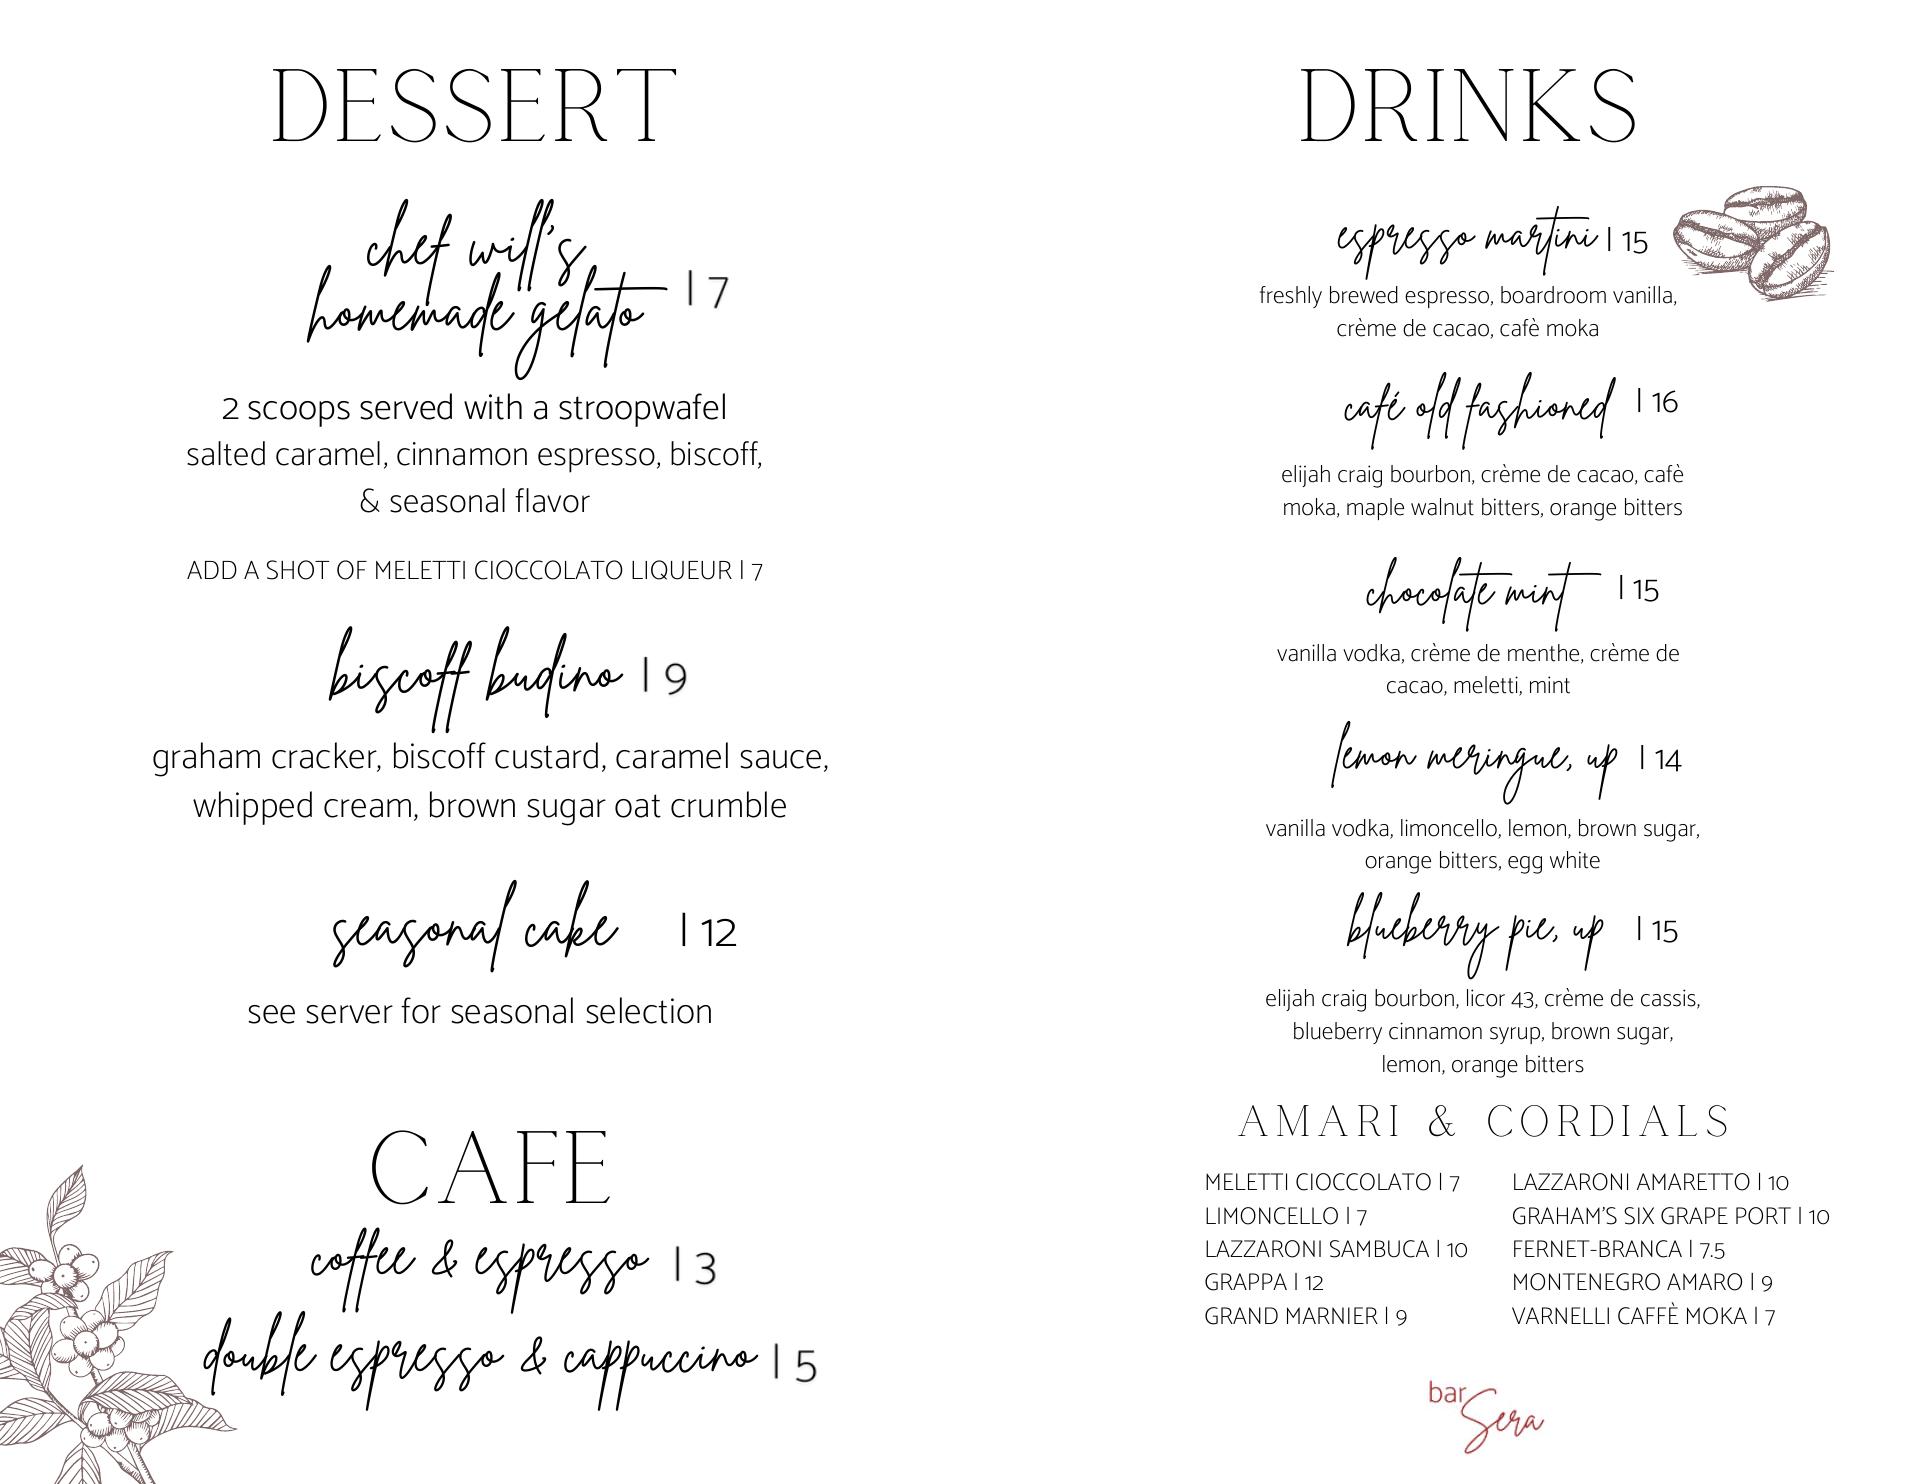 DESSERT
chef will's
homemade gelato | 7
2 scoops served with a stroopwafel
salted caramel, cinnamon espresso, biscoff,
& seasonal flavor
ADD A SHOT OF MELETTI CIOCCOLATO LIQUEUR | 7
biscoff budino | 9
graham cracker, biscoff custard, caramel sauce,
whipped cream, brown sugar oat crumble
seasonal cake | 12
see server for seasonal selection
CAFE
coffee & espresso | 3
double espresso & cappuccino | 5
DRINKS
espresso martini | 15
freshly brewed espresso, boardroom vanilla,
crème de cacao, cafè moka
café old fashioned | 16
elijah craig bourbon, crème de cacao, cafè
moka, maple walnut bitters, orange bitters
chocolate mint | 15
vanilla vodka, crème de menthe, crème de
cacao, meletti, mint
lemon meringue, up | 14
vanilla vodka, limoncello, lemon, brown sugar,
orange bitters, egg white
blueberry pie, up | 15
elijah craig bourbon, licor 43, crème de cassis,
blueberry cinnamon syrup, brown sugar,
lemon, orange bitters
AMARI & CORDIALS
MELETTI CIOCCOLATO | 7
LIMONCELLO | 7
LAZZARONI SAMBUCA | 10
GRAPPA | 12
GRAND MARNIER | 9
LAZZARONI AMARETTO | 10
GRAHAM'S SIX GRAPE PORT | 10
FERNET-BRANCA | 7.5
MONTENEGRO AMARO | 9
VARNELLI CAFFÈ MOKA | 7
bar
Sera